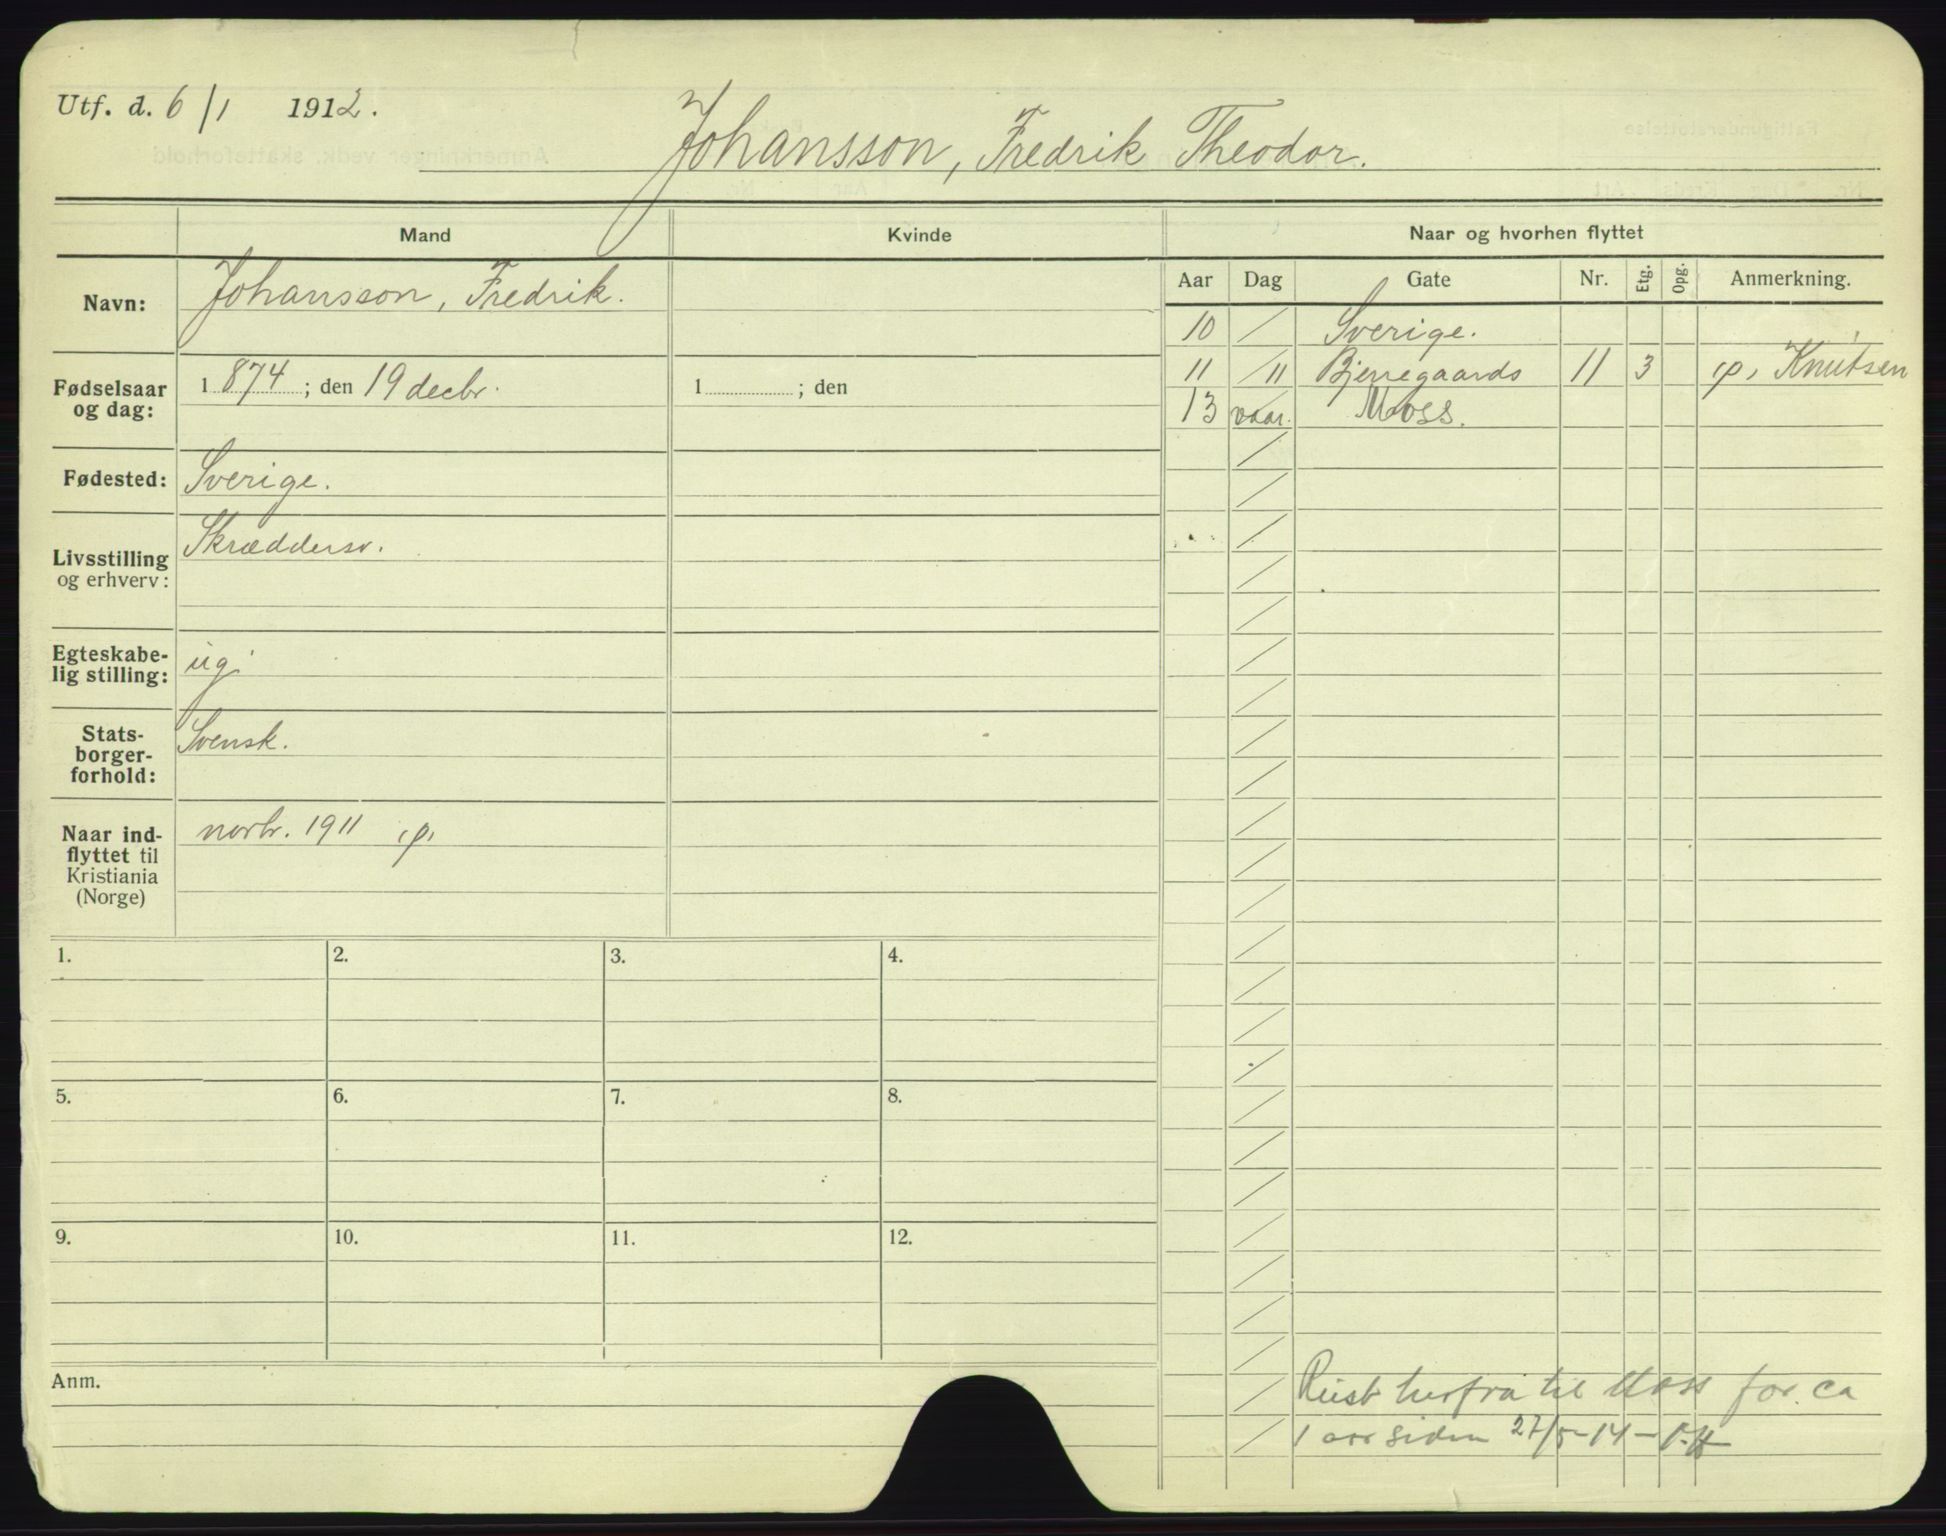 Utf. d. 6/1 1912.
Johansson, Fredrik Theodor.
Mand
Kvinde
Naar og hvorhen flyttet
Navn:
Johansson, Fredrik.
Fødselsaar og dag:
1 874 ; den 19 decbr.
1 ; den
Fødested:
Sverige.
Livsstilling og erhverv:
Skræddersv.
Egteskabe-
lig stilling:
ug.
Stats-
borger-
forhold:
Svensk.
Naar ind-
flyttet til
Kristiania
(Norge)
novbr. 1911
Aar Dag Gate Nr. Etg. Opg. Anmerkning.
10 / Sverige.
11 /11 Bjerregaards 11 3 Knutsen
13 vaar. Moss.
1. 2. 3. 4.
5. 6. 7. 8.
9. 10. 11. 12.
Anm.
Reist herfra til Moss for ca
1 aar siden 27/5-14 -